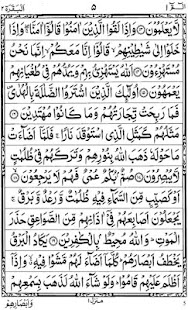 الٓمّٓ ١ ٥ البقرة ٢
لَّا يَعْلَمُوْنَ ۝ وَاِذَا لَقُوا الَّذِيْنَ اٰمَنُوْا قَالُوْٓا اٰمَنَّا ۚ وَاِذَا
خَلَوْا اِلٰى شَيٰطِيْنِهِمْ قَالُوْٓا اِنَّا مَعَكُمْ اِنَّمَا نَحْنُ
مُسْتَهْزِءُوْنَ ۝ اَللّٰهُ يَسْتَهْزِئُ بِهِمْ وَيَمُدُّهُمْ فِيْ طُغْيَانِهِمْ
يَعْمَهُوْنَ ۝ اُولٰٓئِكَ الَّذِيْنَ اشْتَرَوُا الضَّلٰلَةَ بِالْهُدٰى
فَمَا رَبِحَتْ تِّجَارَتُهُمْ وَمَا كَانُوْا مُهْتَدِيْنَ ۝
مَثَلُهُمْ كَمَثَلِ الَّذِي اسْتَوْقَدَ نَارًا ۚ فَلَمَّآ اَضَآءَتْ
مَا حَوْلَهٗ ذَهَبَ اللّٰهُ بِنُوْرِهِمْ وَتَرَكَهُمْ فِيْ ظُلُمٰتٍ
لَّا يُبْصِرُوْنَ ۝ صُمٌّۢ بُكْمٌ عُمْيٌ فَهُمْ لَا يَرْجِعُوْنَ ۝
اَوْ كَصَيِّبٍ مِّنَ السَّمَآءِ فِيْهِ ظُلُمٰتٌ وَّرَعْدٌ وَّبَرْقٌ ۚ
يَجْعَلُوْنَ اَصَابِعَهُمْ فِيْٓ اٰذَانِهِمْ مِّنَ الصَّوَاعِقِ حَذَرَ
الْمَوْتِ ؕ وَاللّٰهُ مُحِيْطٌۢ بِالْكٰفِرِيْنَ ۝ يَكَادُ الْبَرْقُ
يَخْطَفُ اَبْصَارَهُمْ ؕ كُلَّمَآ اَضَآءَ لَهُمْ مَّشَوْا فِيْهِ ۙ وَاِذَآ
اَظْلَمَ عَلَيْهِمْ قَامُوْا ؕ وَلَوْ شَآءَ اللّٰهُ لَذَهَبَ بِسَمْعِهِمْ
منزل ١
وَاَبْصَارِهِمْ